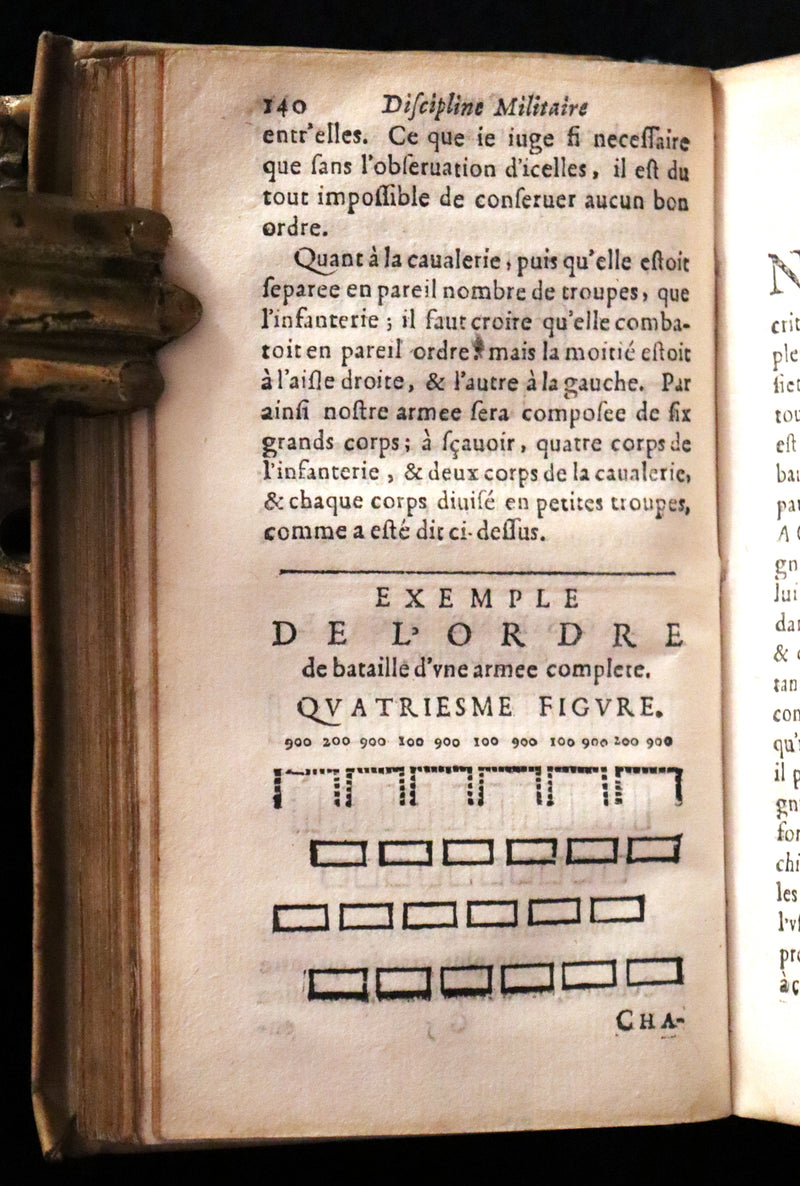 140 Diſcipline Militaire
entr'elles. Ce que ie iuge ſi neceſſaire
que ſans l'obſeruation d'icelles, il eſt du
tout impoſſible de conſeruer aucun bon
ordre.
Quant à la caualerie, puis qu'elle eſtoit
ſeparee en pareil nombre de troupes, que
l'infanterie ; il faut croire qu'elle comba-
toit en pareil ordre: mais la moitié eſtoit
à l'aiſle droite, & l'autre à la gauche. Par
ainſi noſtre armee ſera compoſee de ſix
grands corps; à ſçauoir, quatre corps de
l'infanterie , & deux corps de la caualerie,
& chaque corps diuiſé en petites troupes,
comme a eſté dit ci-deſſus.
EXEMPLE
DE L'ORDRE
de bataille d'vne armee complete.
QVATRIESME FIGVRE.
900 200 900 100 900 100 900 100 900 200 900
CHA-
N
crit
ple
ſiet
tou
eſt
bat
par
A C
gn
lui
dan
& c
tan
con
qu'i
il p
gn
for
chi
les
l'vſ
pre
à ç